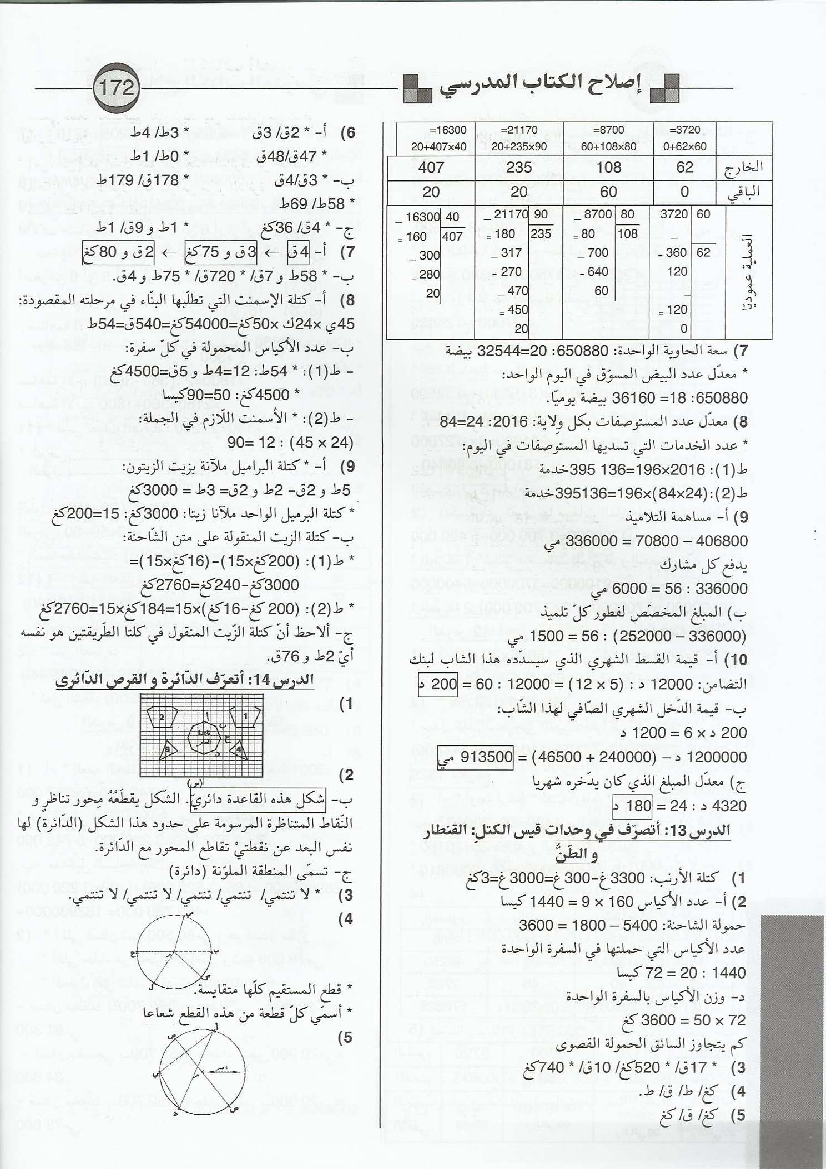 172
إصلاح الكتاب المدرسي
=3720 =8700 =21170 =16300
0+62x60 60+108x80 20+235x90 20+407x40
الخارج 62 108 235 407
الباقي 0 60 20 20
العملية عموديّا
3720 60
- 360 62
120
_
= 120
0
_ 8700 80
= 80 108
_ 700
- 640
60
_ 21170 90
= 180 235
_ 317
- 270
470
= 450
20
_ 16300 40
= 160 407
_ 300
_ 280
20
7) سعة الحاوية الواحدة: 650880: 20=32544 بيضة
* معدّل عدد البيض المسوّق في اليوم الواحد:
650880: 18= 36160 بيضة يوميّا.
8) معدّل عدد المستوصفات بكل ولاية: 2016: 24=84
* عدد الخدمات التي تسديها المستوصفات في اليوم:
ط(1): 2016x196=136 395خدمة
ط(2): (24x84)x196=395136خدمة
9) أ- مساهمة التلاميذ
406800 - 70800 = 336000 مي
يدفع كل مشارك
336000 : 56 = 6000 مي
ب) المبلغ المخصّص لفطور كلّ تلميذ
(336000 – 252000) : 56 = 1500 مي
10) أ- قيمة القسط الشهري الذي سيسدّده هذا الشاب لبنك
التضامن: 12000 د : (5 x 12) = 12000 : 60 = 200 د
ب- قيمة الدّخل الشهري الصّافي لهذا الشّاب:
200 د x 6 = 1200 د
1200000 د – (240000 + 46500) = 913500 مي
ج) معدّل المبلغ الذي كان يدّخره شهريا
4320 د : 24 = 180 د
الدرس 13: أتصرّف في وحدات قيس الكتل: القنطار
و الطنّ
1) كتلة الأرنب: 3300غ-300غ=3000غ=3كغ
2) أ- عدد الأكياس 160 x 9 = 1440 كيسا
حمولة الشاحنة: 5400 - 1800 = 3600
عدد الأكياس التي حملتها في السفرة الواحدة
1440 : 20 = 72 كيسا
د- وزن الأكياس بالسفرة الواحدة
72 x 50 = 3600 كغ
لم يتجاوز السائق الحمولة القصوى
3) * 17ق/ * 520كغ/ 10ق/ * 740كغ
4) كغ/ ط/ ق/ ط.
5) كغ/ ق/ كغ
6) أ- * 2ق/ 3ق * 3ط/ 4ط
* 47ق/48ق * 0ط/ 1ط
ب- * 3ق/4ق * 178ق/ 179ط
* 58ط/ 69ط
ج- * 4ق/ 36كغ * 1ط و 9ق/ 1ط
7) أ- 4ق ← 3ق و 75كغ ← 2ق و 80كغ
ب- * 58ط و 7ق/ * 720ق/ * 75ط و 4ق.
8) أ- كتلة الإسمنت التي تطلّبها البناء في مرحلته المقصودة:
45ي x24ك x50كغ=54000كغ=540ق=54ط
ب- عدد الأكياس المحمولة في كلّ سفرة:
- ط(1): * 54ط: 12=4ط و 5ق=4500كغ
* 4500كغ: 50=90كيسا
- ط(2): * الأسمنت اللاّزم في الجملة:
(24 x 45) : 12 =90
9) أ- * كتلة البراميل ملآنة بزيت الزيتون:
5ط و 2ق- 2ط و 2ق= 3ط = 3000كغ
* كتلة البرميل الواحد ملآنا زيتا: 3000كغ: 15=200كغ
ب- كتلة الزيت المنقولة على متن الشّاحنة:
* ط(1): (200كغx15)-(16كغx15)=
3000كغ-240كغ=2760كغ
* ط(2): (200 كغ-16كغ)x15=184كغx15=2760كغ
ج- ألاحظ أنّ كتلة الزّيت المنقول في كلتا الطريقتين هو نفسه
أيْ 2ط و 76ق.
الدرس 14: أتعرّف الدّائرة و القرص الدّائري
1)
2)
ب- شكل هذه القاعدة دائريّ. الشكل يقطعه محور تناظر و
النّقاط المتناظرة المرسومة على حدود هذا الشكل (الدّائرة) لها
نفس البعد عن نقطتيْ تقاطع المحور مع الدّائرة.
ج- تسمّى المنطقة الملوّنة (دائرة)
3) * لا تنتمي/ تنتمي/ تنتمي/ لا تنتمي/ لا تنتمي.
4)
* قطع المستقيم كلّها متقايسة.
* أسمّي كلّ قطعة من هذه القطع شعاعا
5)